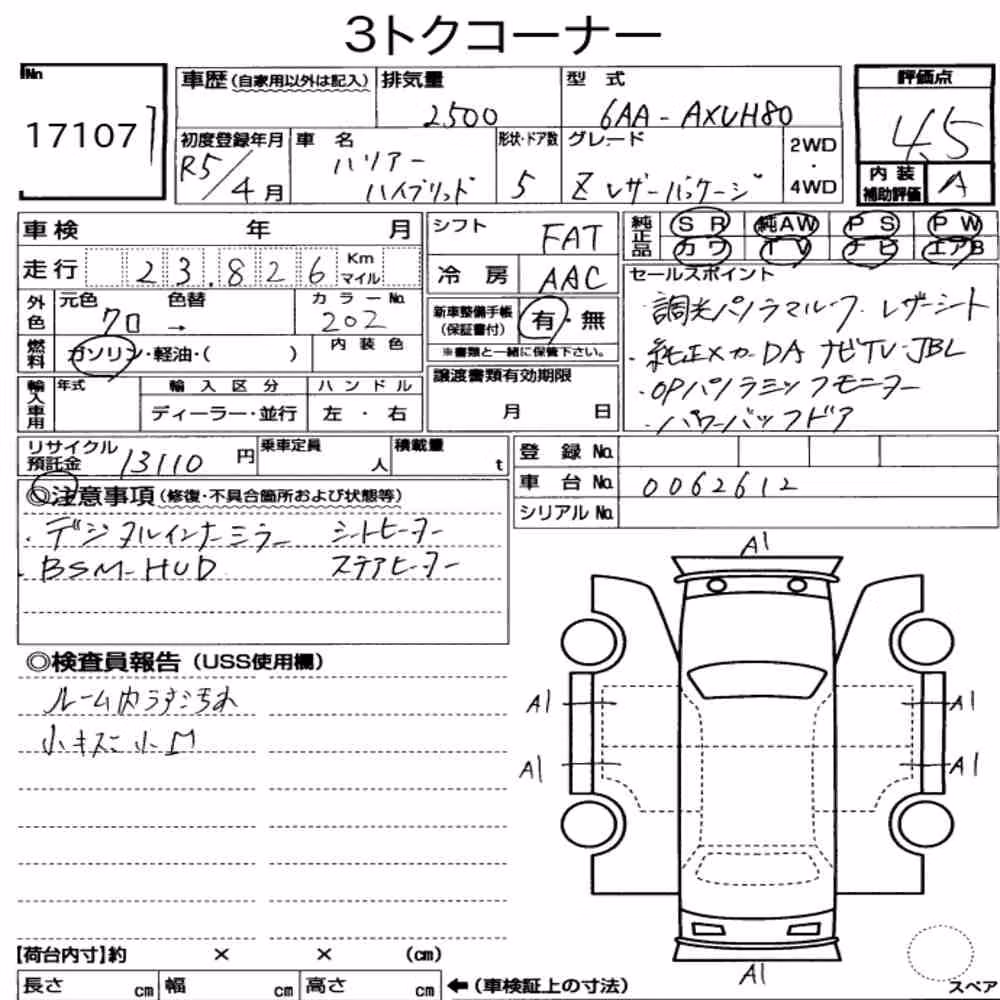 3トクコーナー
No
17107
車歴(自家用以外は記入)
排気量
2500
型 式
6AA-AXUH80
評価点
4.5
初度登録年月
R5/4月
車 名
ハリアー
ハイブリッド
形状・ドア数
5
グレード
Z レザーパッケージ
2WD
・
4WD
内装
補助評価
A
車検 年 月
走行 23.826 Km マイル
シフト
FAT
冷房
AAC
純正品
SR 純AW PS PW
カワ TV ナビ エアB
外色
元色
クロ
→
色替
カラーNo.
202
新車整備手帳
(保証書付)
有・無
※書類と一緒に保管下さい。
セールスポイント
・調光パノラマルーフ レザーシート
・純正メーカーDA ナビTV・JBL
・OPパノラミックモニター
・パワーバックドア
燃料
ガソリン・軽油・( )
内装色
譲渡書類有効期限
月 日
輸入車用
年式
輸入区分
ディーラー・並行
ハンドル
左・右
リサイクル
預託金
13110円
乗車定員
人
積載量
t
登録No.
車台No.
0062612
シリアルNo.
◎注意事項(修復・不具合箇所および状態等)
・デジタルインナーミラー シートヒーター
・BSM-HUD ステアヒーター
◎検査員報告(USS使用欄)
ルーム内うすごみ汚れ
小キズ 小凹
A1
A1
A1
A1
A1
A1
【荷台内寸】約 × × (cm)
長さ cm 幅 cm 高さ cm ←(車検証上の寸法)
スペア